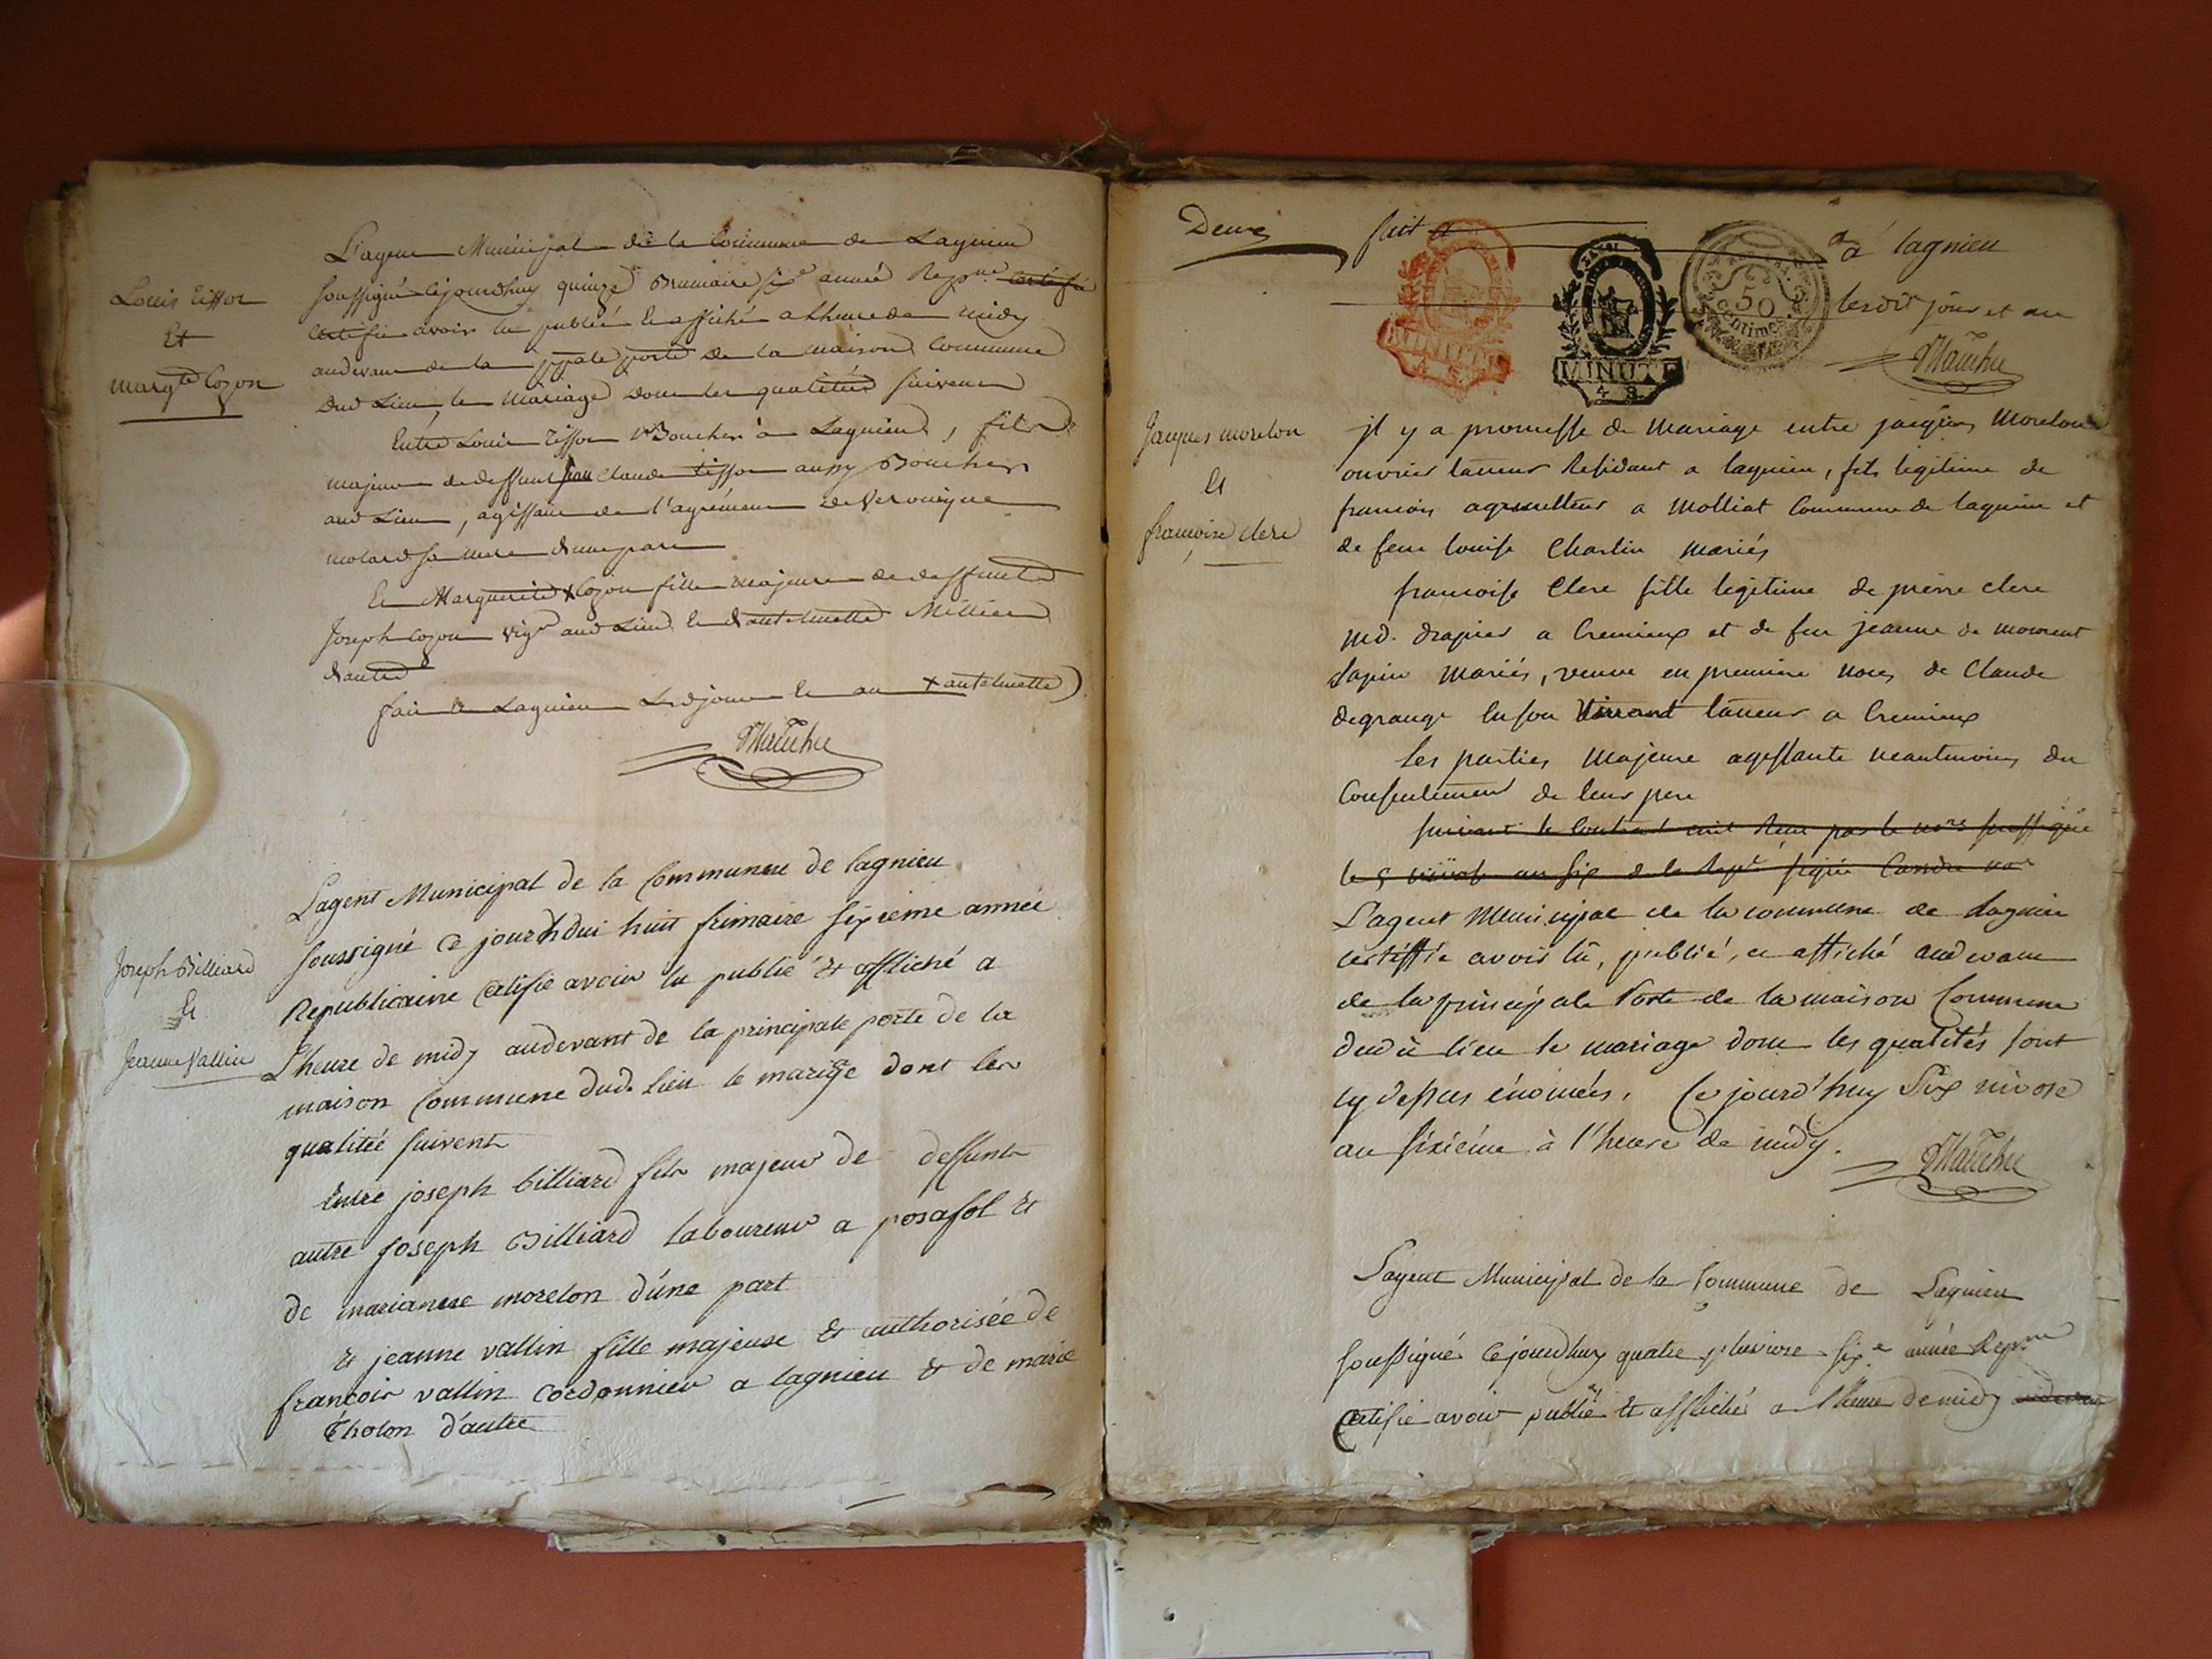 Louis Tissot
Et
margte Cozon
L'agent Municipal de la Commune de Lagnieu
soussigné cejourdhuy quinze Brumaire sixe année Repne certifie
certifie avoir lu publié et affiché a Lheure de midy
audevant de la ppale porte de la maison Commune
dud Lieu, le Mariage dont les qualités suivent
Entre Louis Tissot Boucher à Lagnieu, fils
majeur de deffunt jean Claude tissot aussy Boucher
aud Lieu, agissant de l'agrément de Veronique
molard sa mere d'une part
Et Marguerite x Cozon fille majeure de deffunt
Joseph Cozon vign aud Lieu et d'antelmette Millier
d'autre
fait a Lagnieu Lesd jour et an x antelmette)
Joseph Billiard
Et
Jeanne Vallin
L'agent Municipal de la Commune de lagnieu
soussigné ce jourdhui huit frimaire sixieme année
Republicaine certifie avoir lu publié et affliché a
l'heure de midy audevant de la principale porte de la
maison Commune dud. lieu le mariage dont les
qualitée suivent
Entre joseph billiard fils majeur de deffunt
autre joseph Billiard laboureur a posafol et
de marianne morelon d'une part
et jeanne vallin fille majeure et authorisée de
françois vallin cordonnier a lagnieu et de marie
Tholon d'autre
Deux
fait a à lagnieu
lesdit jour et an
MINUTE
4 8
50
Centimes
Jacques morelon
Et
francoise clere
il y a promesse de mariage entre jacques Morelon
ouvrier tanneur Residant a lagnieu, fils legitime de
francois agriculteur a Molliat Commune de lagnieu et
de feue louise Charlin mariés
francoise Clere fille legitime de pierre clere
md. drapier a Cremieux et de feu jeanne de moment
lapin mariés, veuve en premiere noces de Claude
degrange tanneur a Cremieux
Les parties majeure agissante neantmoins du
Consentement de leur pere
suivant le Contrat reçu par le nore soussigné
le 5 nivose an six de la Repe signé
L'agent Municipal de la commune de Lagnieu
certiffie avoir lû, publié, et affiché audevant
de la principale Porte de la maison Commune
dudit lieu le mariage dont les qualités sont
cy dessus énoncées, Ce jourd'huy Six nivose
an sixiéme à l'heure de midy.
L'agent Municipal de la Commune de Lagnieu
soussigné cejourdhuy quatre pluviose sixe année Repne
Certifie avoir publié et affliché a l'heure de midy audevant